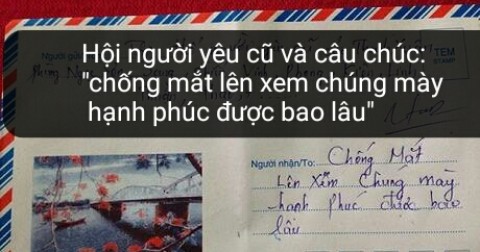 Hội người yêu cũ và câu chúc:
"chống mắt lên xem chúng mày
hạnh phúc được bao lâu"
TEM
STAMP
Người nhận/To: Chống Mắt
Lên Xem Chúng mày
hạnh Phúc được bao
lâu